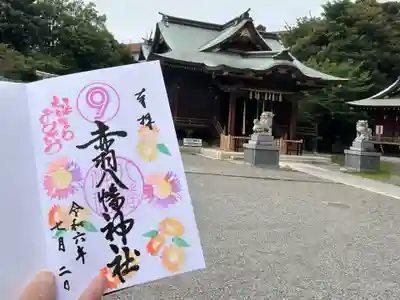 奉拝
⑨
赤羽八幡神社
令和六年
七月二日